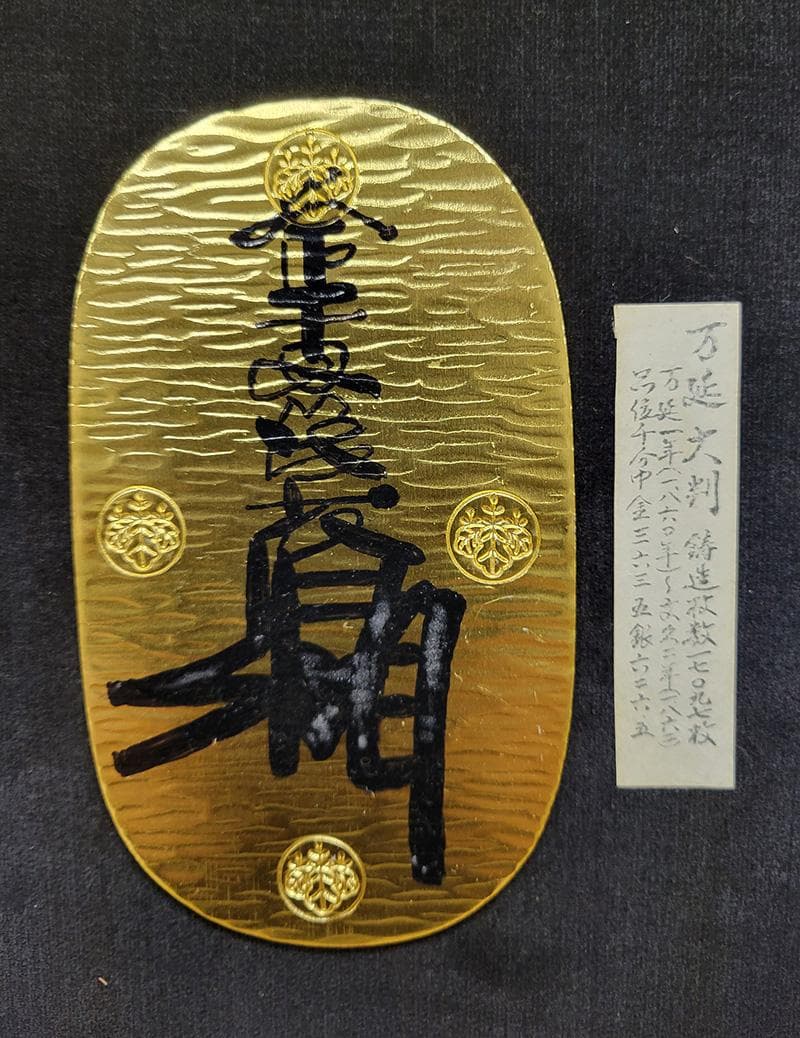 万延大判 鋳造枚数一七〇九七枚
万延一年(一八六〇年)～文久二年(一八六二
品位千分中金三六三五銀六二六五